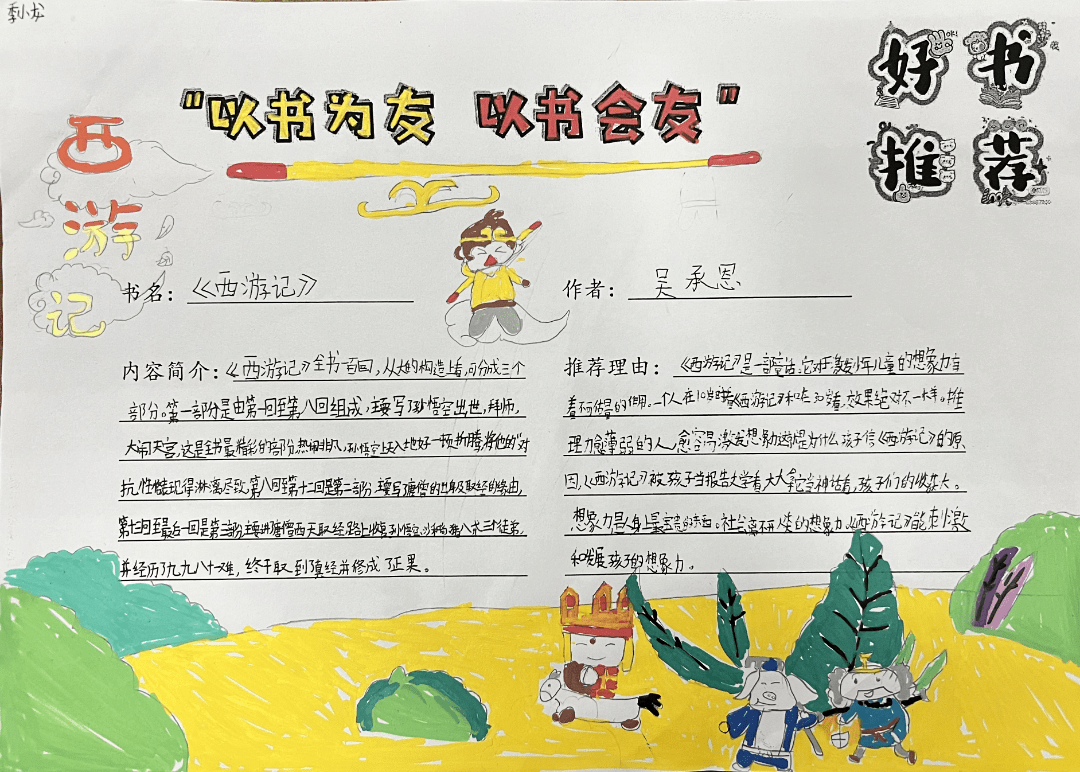 李小龙
好书
推荐
"以书为友 以书会友"
西
游
记
书名：《西游记》
作者：吴承恩
内容简介：《西游记》全书一百回，从大的构造上看，可分成三个
部分。第一部分是由第一回至第八回组成，主要写了孙悟空出世，拜师，
大闹天宫，这是全书最精彩的部分，热闹非凡，孙悟空上天入地好一顿折腾，将他的"对
抗"性格表现得淋漓尽致。第八回至第十二回是第二部分，主要写了唐僧的出身及取经的缘由，
第十三回至最后一回是第三部分，主要讲唐僧西天取经，路上收复孙悟空
三个徒弟，
并经历了九九八十一难，终于取到了真经并修成了正果。
推荐理由：《西游记》是一部童话，它对于激发少年儿童的想象力有
着不可估量的作用。一个人在10岁时看《西游记》和
岁看，效果绝对不一样。推
理力愈薄弱的人，愈容易激发想象力，这就是为什么孩子
《西游记》的原
因，《西游记》被孩子当报告文学看，大人拿它当神话看，孩子们的收获大。
想象力是人身上最宝贵的东西。社会离不开人类的想象力，《西游记》能刺激
和发展孩子的想象力。